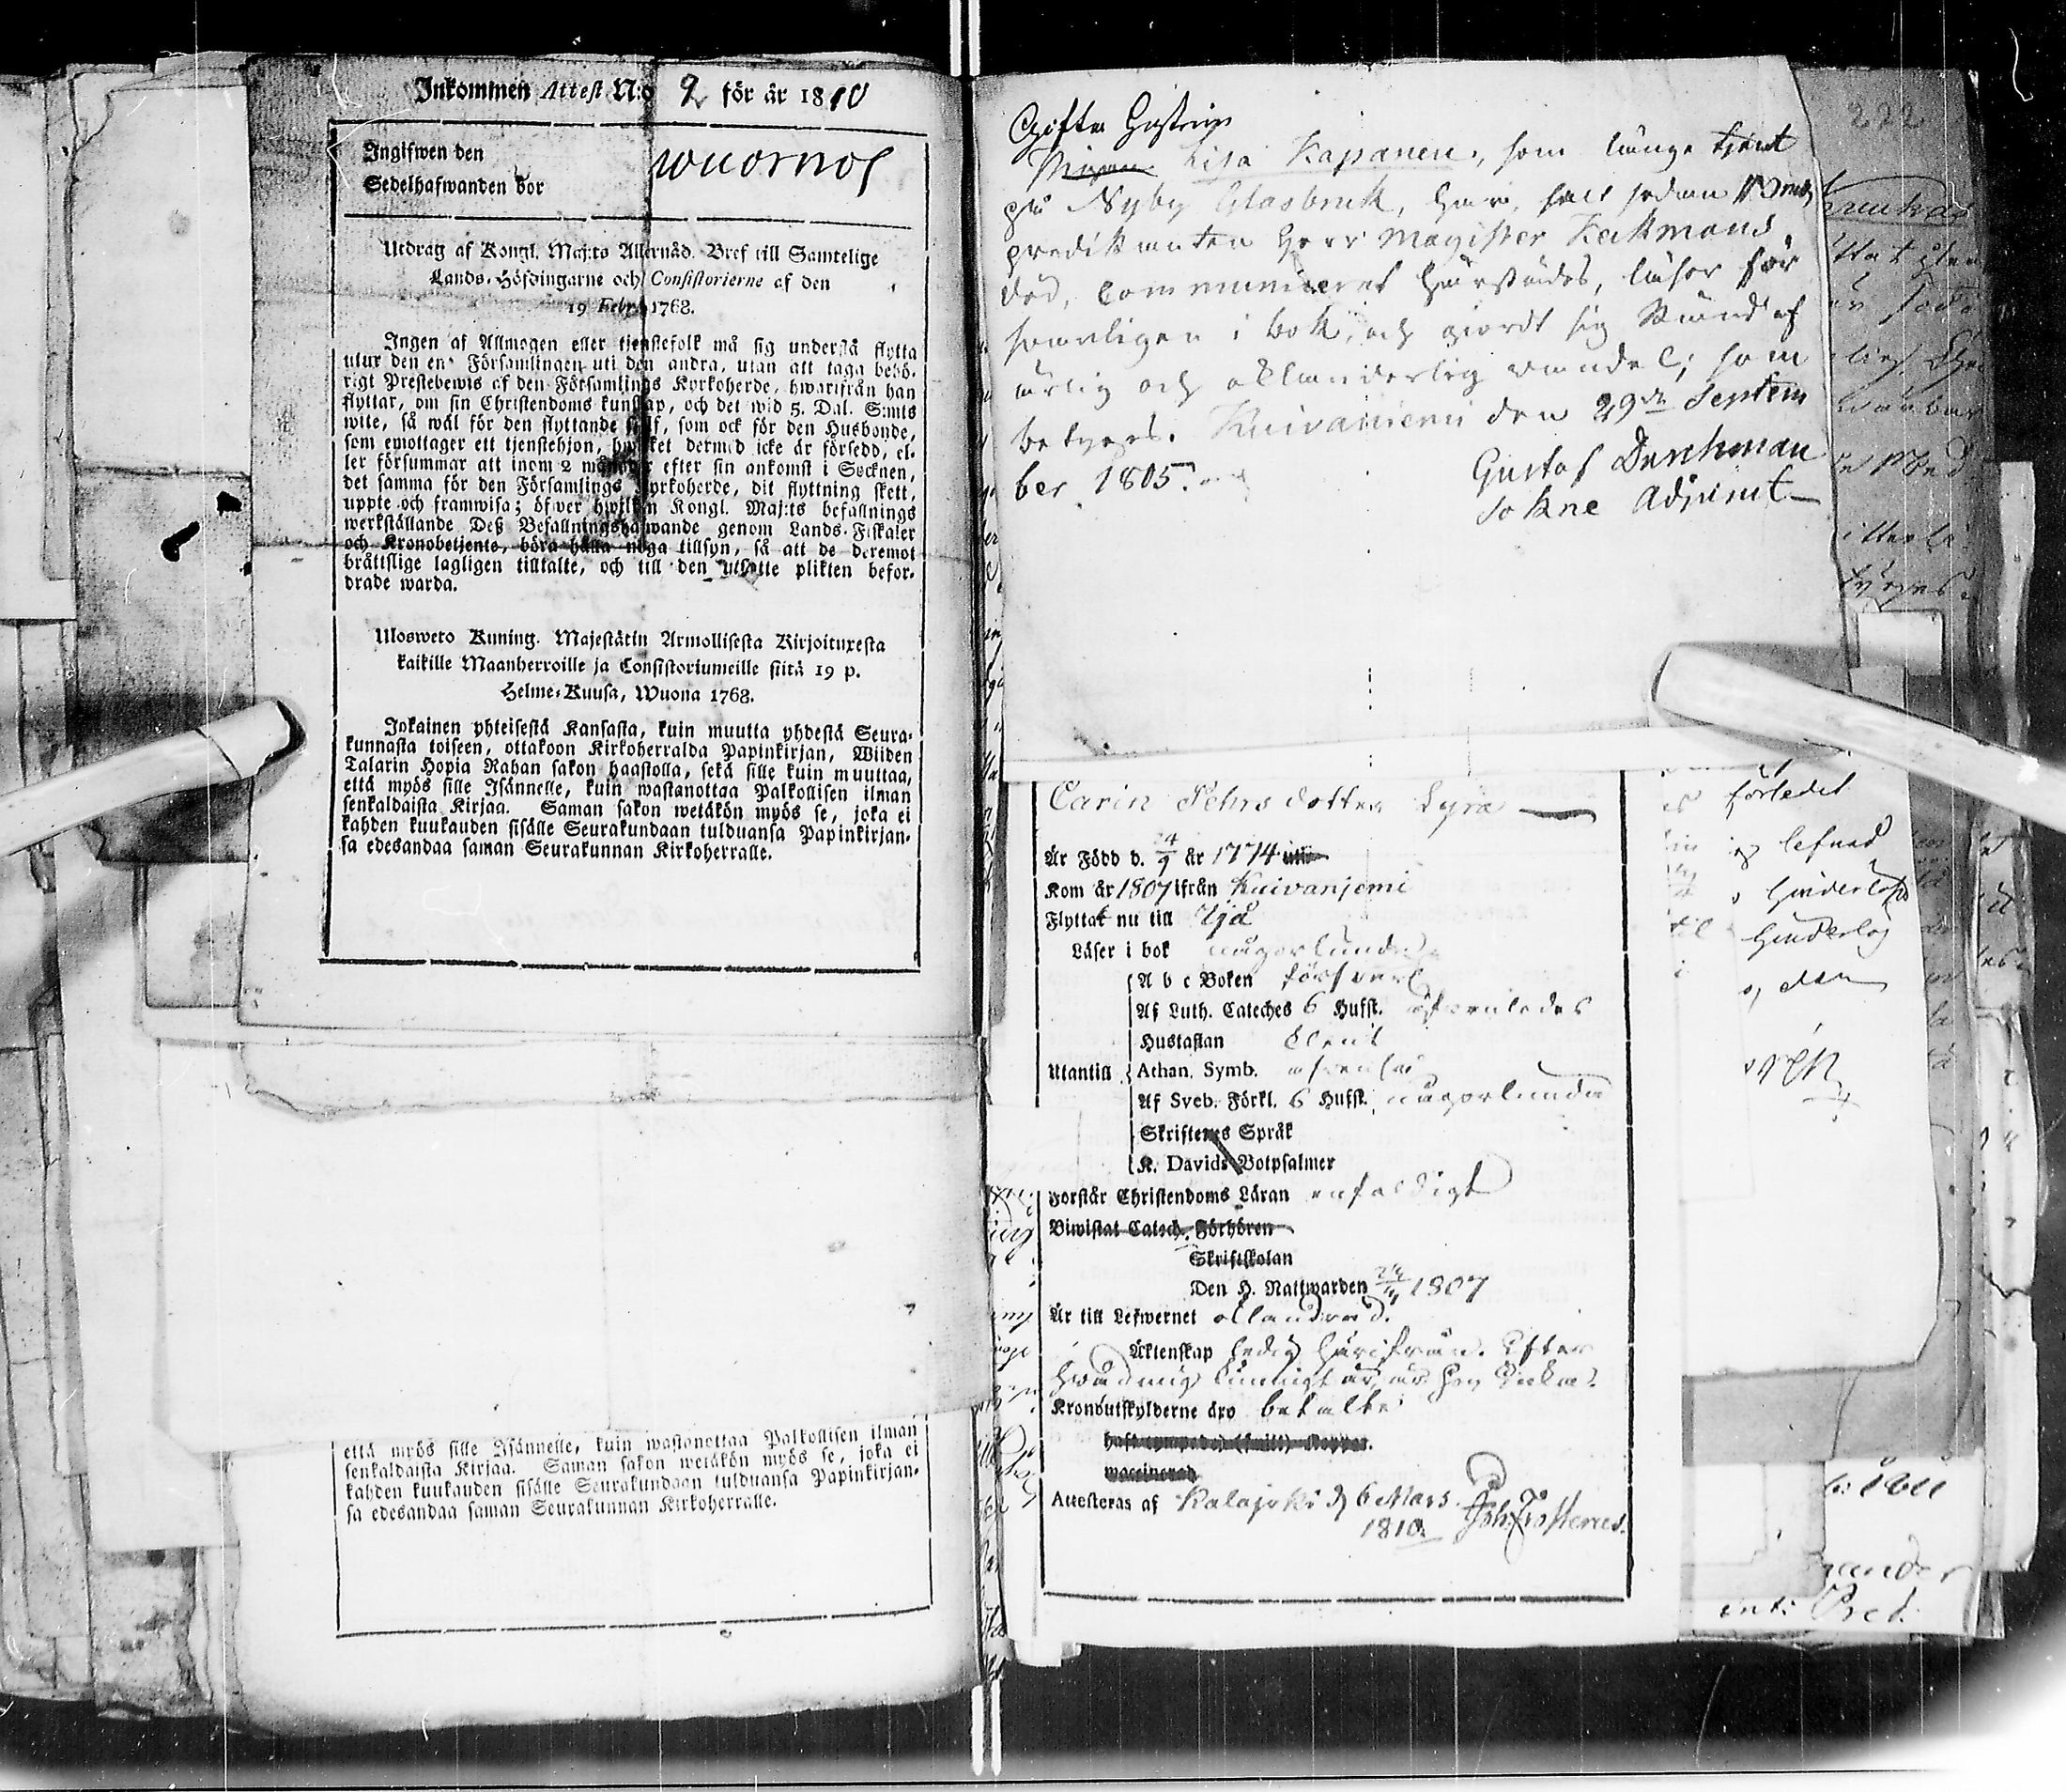 Inkommen Attest N:o 9 för år 1810
Ingifwen den
Sedelhafwanden bor Wuornos
Utdrag af Kongl. Maj:ts Allernåd. Bref till Samtelige
Lands-Höfdingarne och Consistorierne af den
19 Febr. 1768.
Ingen af Allmogen eller tjenstefolk må sig understå flytta
utur den ena Församlingen uti den andra, utan att taga behö-
rigt Prestebewis af den Församlings Kyrkoherde, hwarifrån han
flyttar, om sin Christendoms kunskap, och det wid 5. Dal. S:mts
wite, så wäl för den flyttande sjelf, som ock för den Husbonde,
som emottager ett tjenstehjon, hwilket dermed icke är försedd, el-
ler försummar att inom 2 månader efter sin ankomst i Socknen,
det samma för den Församlings Kyrkoherde, dit flyttning skett,
uppte och framwisa; öfwer hwilken Kongl. Maj:ts befallnings
werkställande Deß Befallningshafwande genom Lands-Fiskaler
och Kronobetjente, böra hålla noga tillsyn, så att de deremot
bråttslige lagligen tilltalte, och till den utsatte plikten befor-
drade warda.
Ulosweto Kuning. Majestätin Armollisesta Kirjoituxesta
kaikille Maanherroille ja Consistoriumeille siitä 19 p.
Helme-Kuusa, Wuona 1768.
Jokainen yhteisestä Kansasta, kuin muutta yhdestä Seura-
kunnasta toiseen, ottakoon Kirkoherralda Papinkirjan, Wiiden
Talarin Hopia Rahan sakon haastolla, sekä sille kuin muuttaa,
että myös sille Isännelle, kuin wastanottaa Palkollisen ilman
senkaldaista Kirjaa. Saman sakon wetäkön myös se, joka ei
kahden kuukauden sisälle Seurakundaan tulduansa Papinkirjan-
sa edesandaa saman Seurakunnan Kirkoherralle.
että myös sille Isännelle, kuin wastanottaa Palkollisen ilman
senkaldaista Kirjaa. Saman sakon wetäkön myös se, joka ei
kahden kuukauden sisälle Seurakundaan tulduansa Papinkirjan-
sa edesandaa saman Seurakunnan Kirkoherralle.
Gifta Hustrun
Lisa Kapanen, som länge tjent
på Nyby Glasbruk, har, sedan
predikanten Herr Magister Keckmans
död, communicerat härstädes, läser för
svarligen i bok, och giordt sig känd af
ärlig och oklanderlig wandel; som
betyges. Kuivaniemi den 29de Septem
ber 1805.
Gustaf Durchman
Sokne Adjunct
Carin Pehrs dotter Lyra
Är Född d. 24/9 år 1774
Kom år 1807 ifrån Kuivanjemi
Flyttat nu till Ijå
Läser i bok någorlunda
A b c Boken försvarl
Af Luth. Cateches 6 Hufst. äfvenledes
Hustaflan Klent
Utantill Athan. Symb. äfvenså
Af Sveb. Förkl. 6 Hufst. någorlunda
Skriftenes Språk
K. Davids Botpsalmer
Förstår Christendoms Läran enfaldigt
Biwistat Catech. Förhören
Skriftskolan
Den H. Nattwarden 1807
Är till Lefwernet oklandrad.
Äktenskap ledig härifrån. Efter
hvad mig kunnigt är, är hon Enka.
Kronoutskylderne äro betalte
haft Koppor.
waccinerad
Attesteras af Kalajoki d 6 Mars
1810. Joh. Frosterus.
222
förledet
lefnad
hinderlös
hinderlös
den